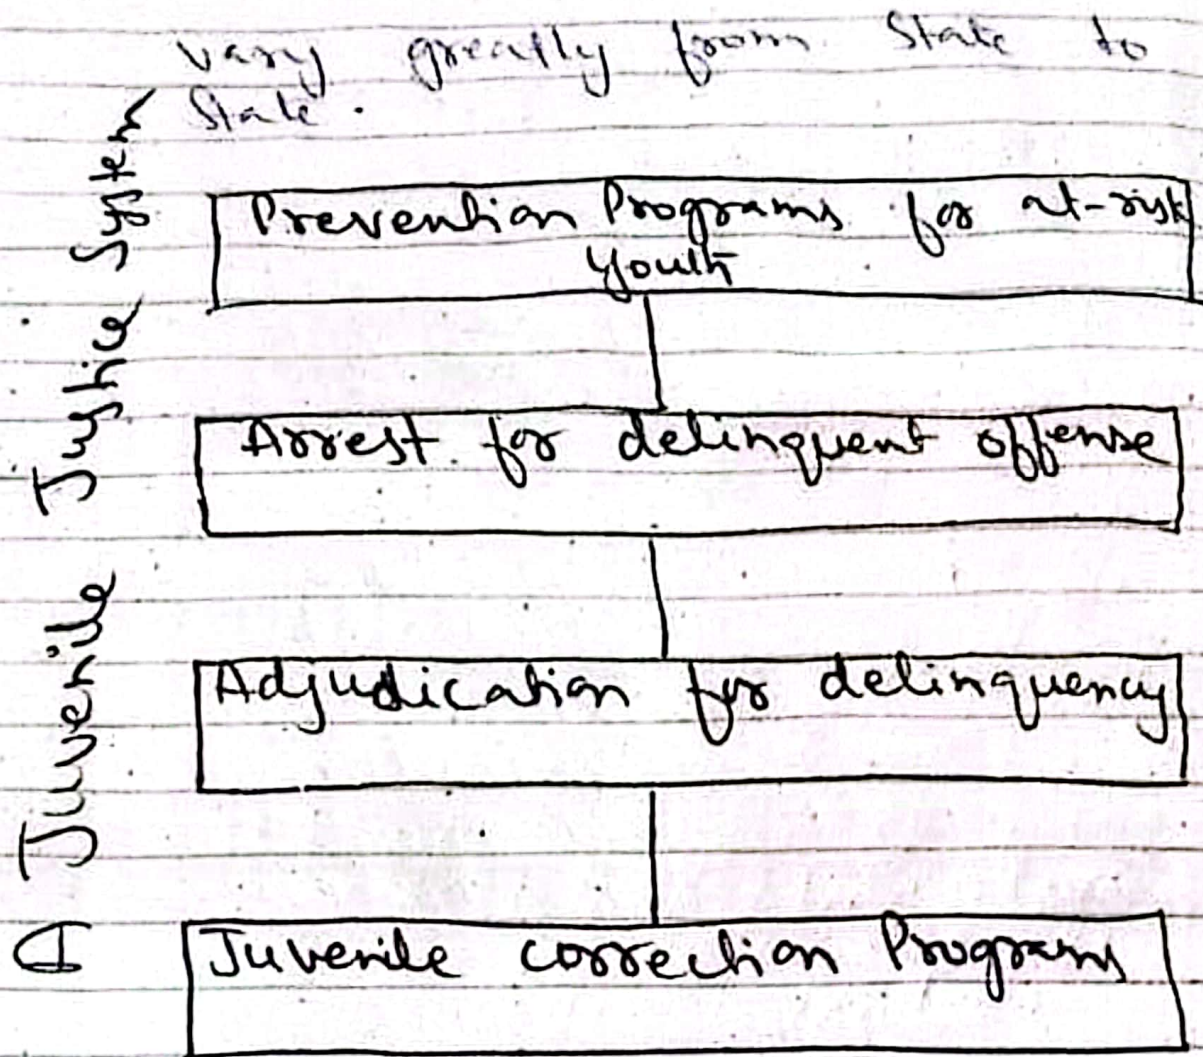 vary greatly from State to
State.
Juvenile Justice System
Prevention Programs for at-risk
youth
Arrest for delinquent offense
Adjudication for delinquency
Juvenile correction Programs